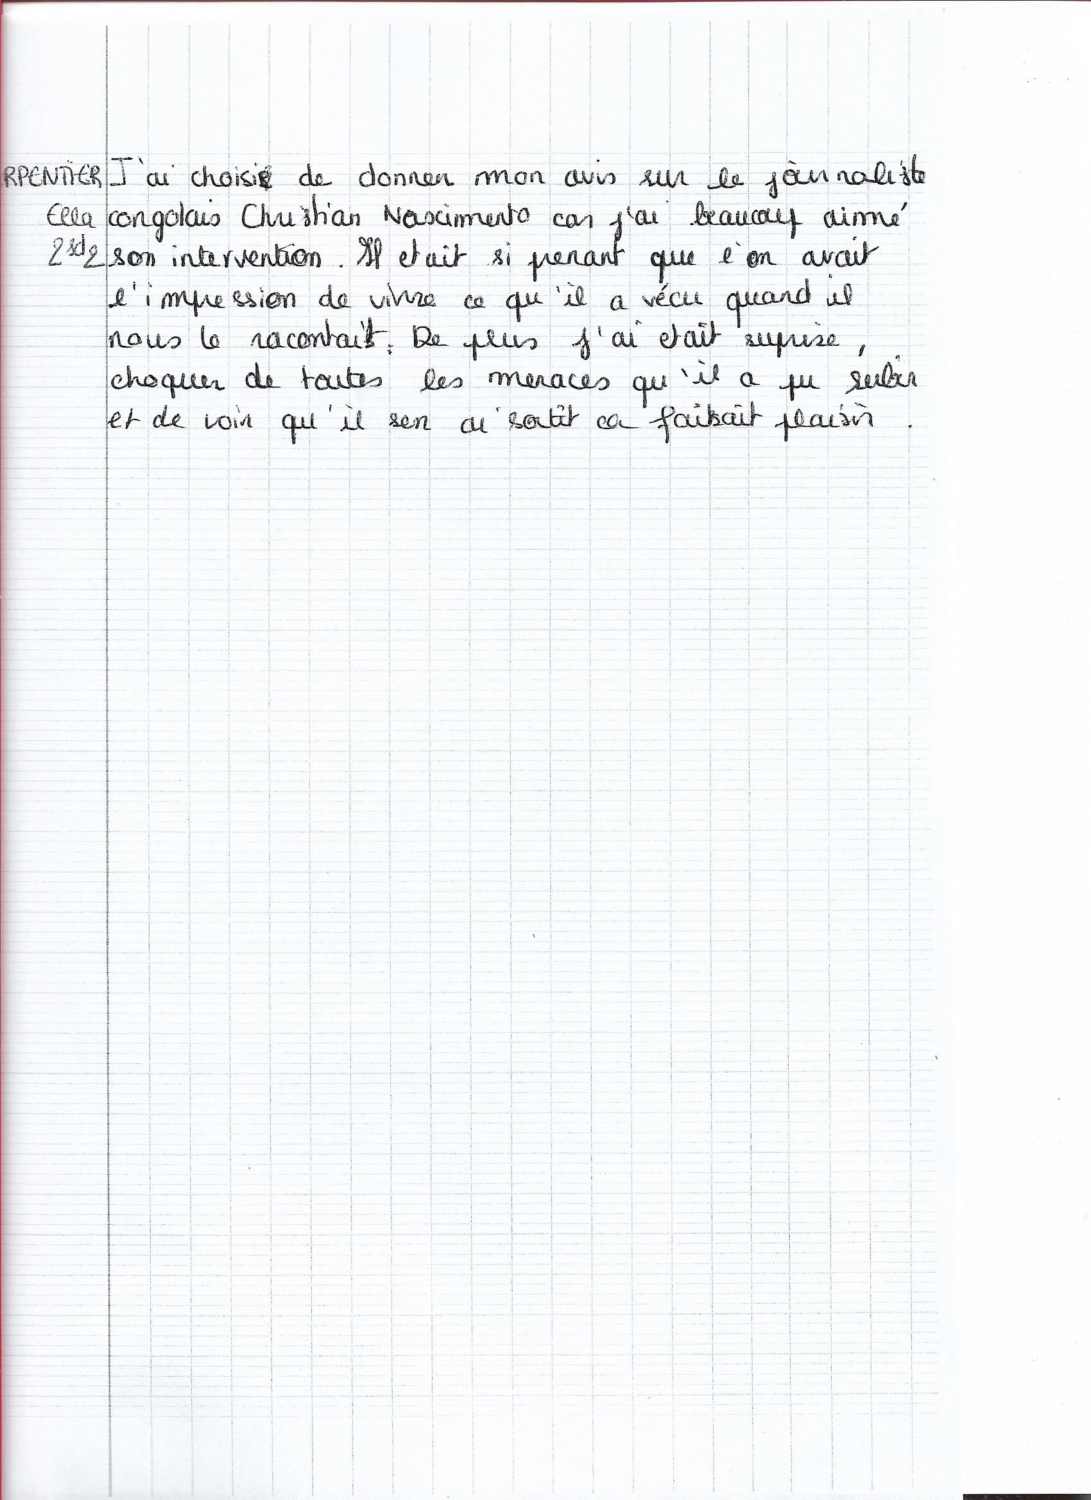 RPENTIER J'ai choisi de donner mon avis sur le journaliste
Ella congolais Christian Nascimento car j'ai beaucoup aimé
2sd2 son intervention. Il etait si prenant que l'on avait
l'impression de vivre ce qu'il a vécu quand il
nous le racontait. De plus j'ai etait suprise,
choquer de toutes les menaces qu'il a pu subir
et de voir qu'il sen ai sortit ca faisait plaisir.